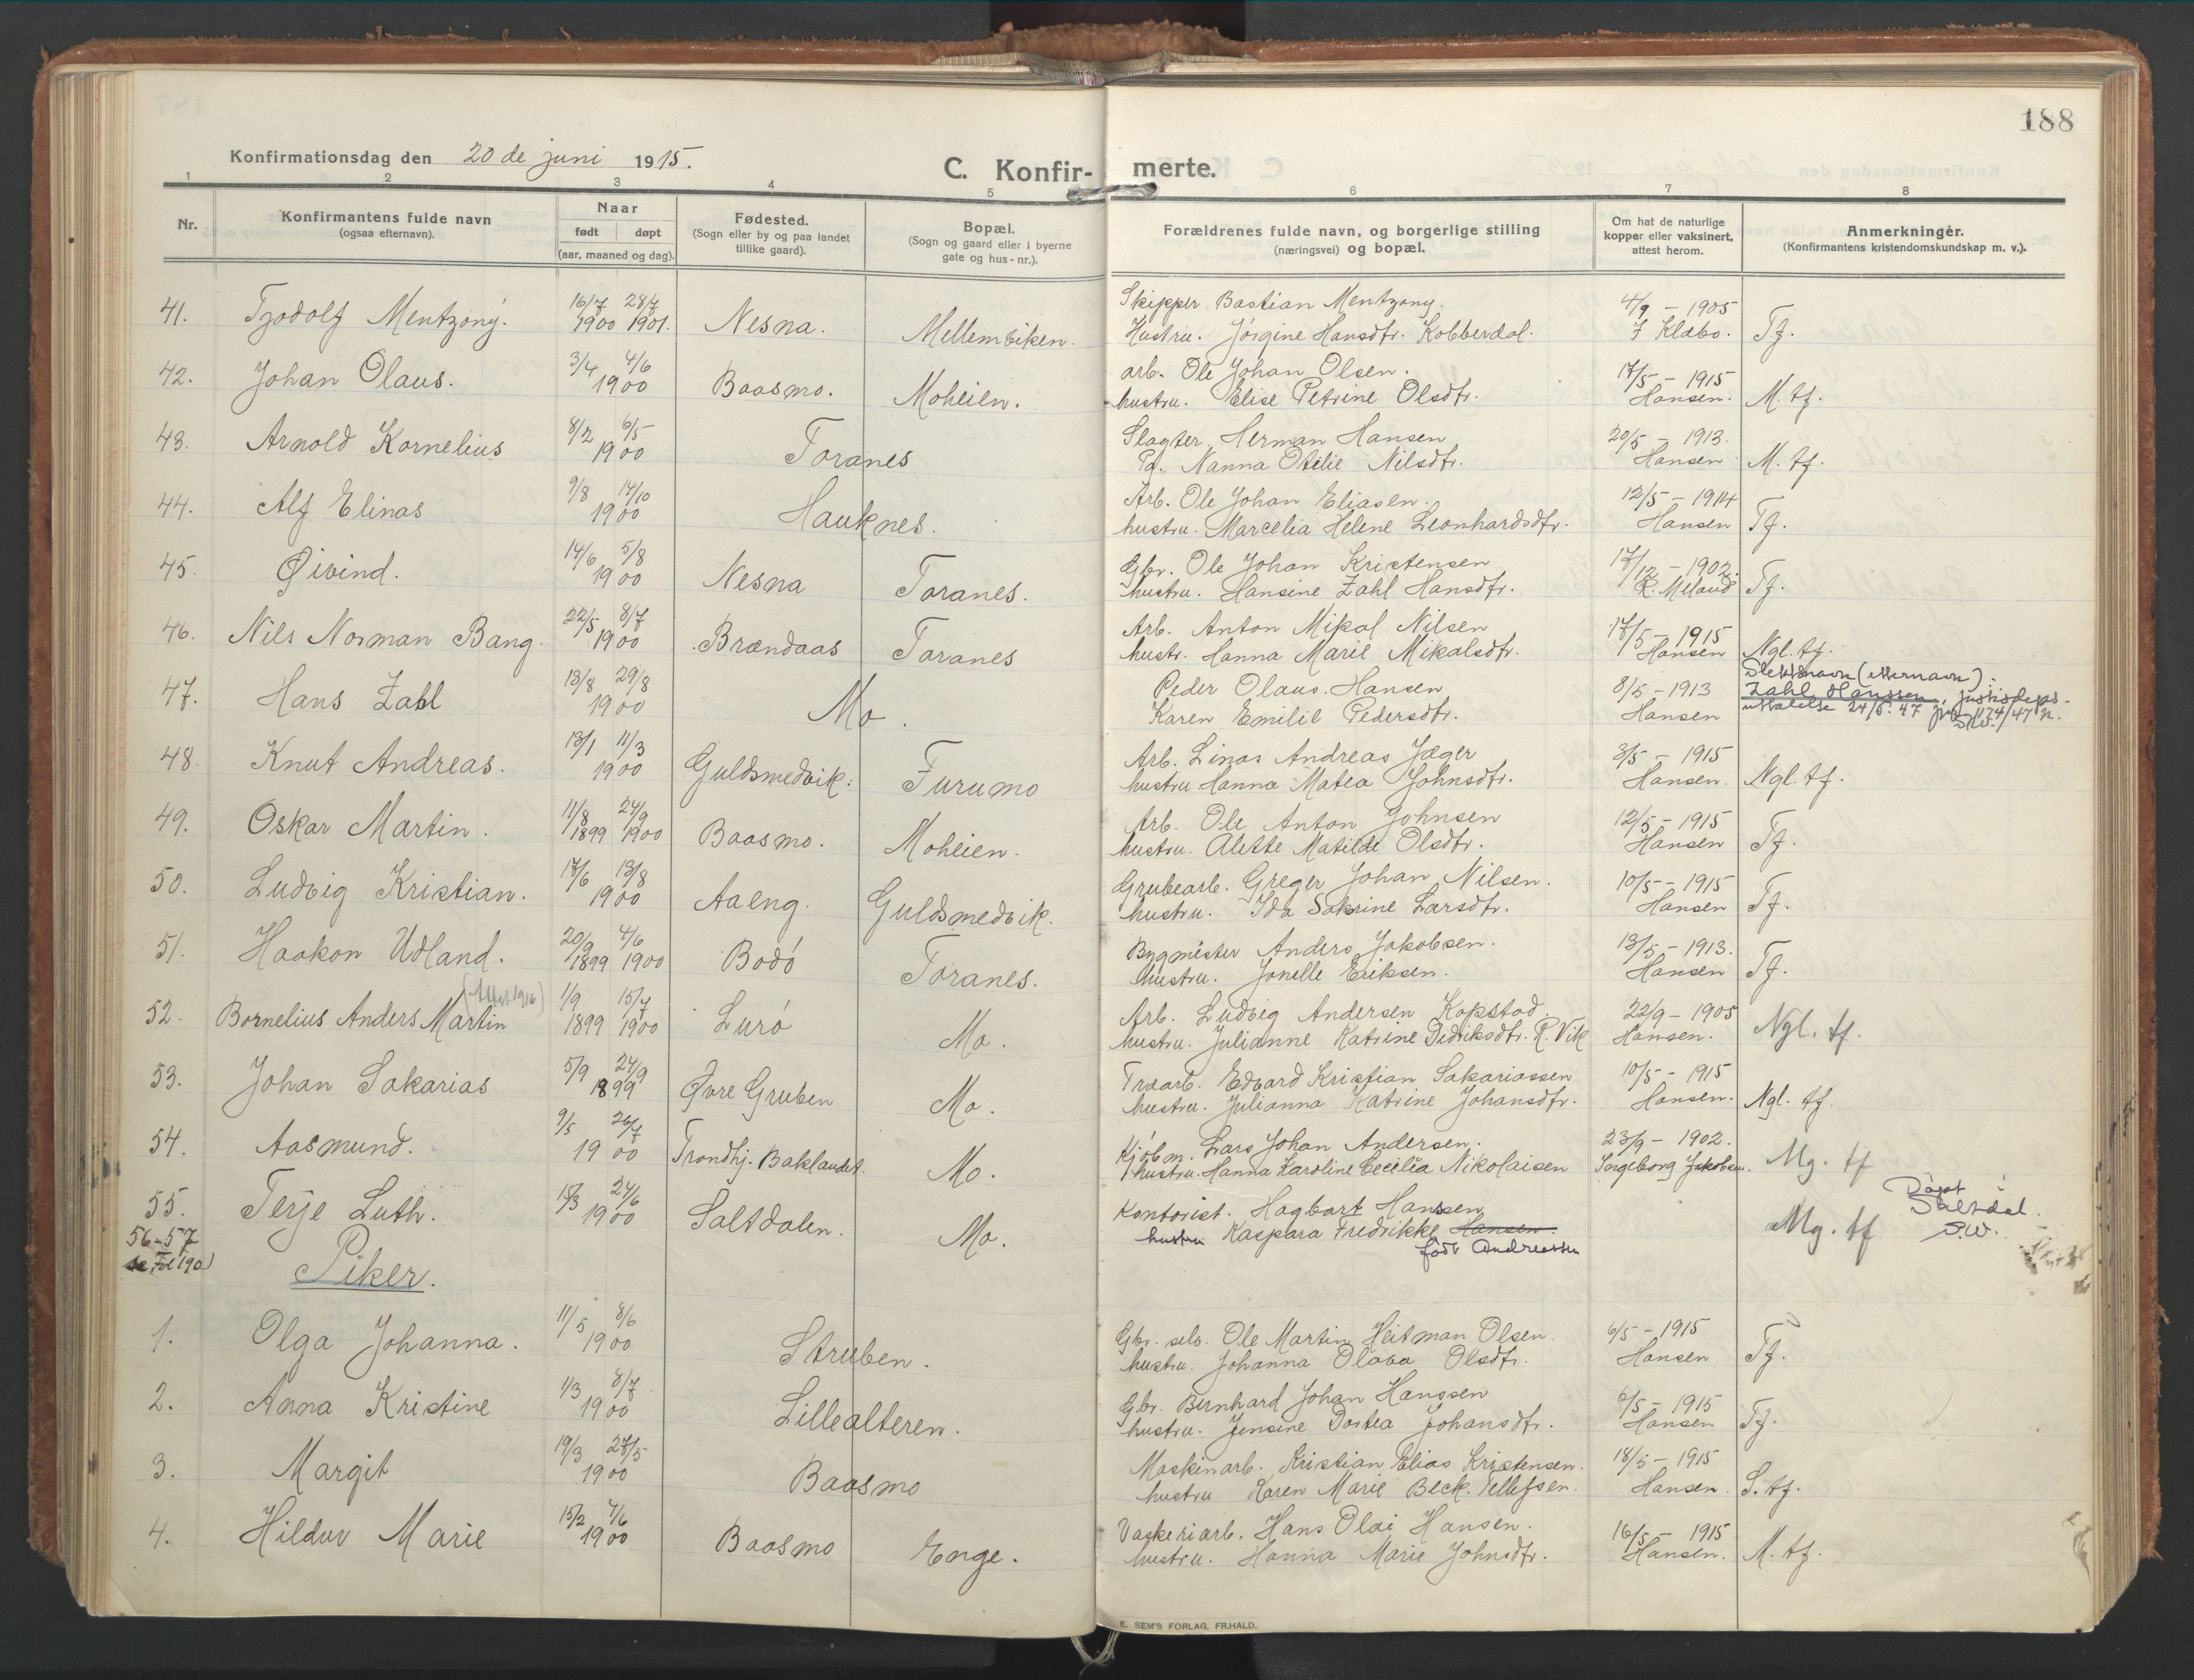 188
Konfirmationsdag den 20 de juni 1915.
C. Konfir- merte.
1 2 3 4 5 6 7 8
Nr.
Konfirmantens fulde navn
(ogsaa efternavn).
Naar
født døpt
(aar, maaned og dag).
Fødested.
(Sogn eller by og paa landet
tillike gaard).
Bopæl.
(Sogn og gaard eller i byerne
gate og hus-nr.).
Forældrenes fulde navn, og borgerlige stilling
(næringsvei) og bopæl.
Om hat de naturlige
kopper eller vaksinert,
attest herom.
Anmerkninger.
(Konfirmantens kristendomskundskap m. v.).
41. Tjodolf Mentzony. 16/7 1900 28/7 1901. Nesna. Mellemviken. Skipper Bastian Mentzony. 4/9 - 1905
Hustru. Jörgine Hansdtr. Kobberdal. J Klæbo. Tf.
42. Johan Olaus. 3/4 4/6 1900 Baasmo. Moheien. arb. Ole Johan Olsen. 17/5 - 1915
hustru. Elise Petrine Olsdtr. Hansen. M. tf.
43. Arnold Kornelius 8/2 6/5 1900 Toranes Slagter Herman Hansen 20/5 - 1913.
Nanna Otelie Nilsdtr. Hansen M. tf.
44. Alf Elinas 9/8 14/10 1900 Hauknes. Arb. Ole Johan Eliasen. 12/5 - 1914
hustru. Marcelia Helene Leonhardsdtr. Hansen Tf.
45. Øivind. 14/6 5/8 1900 Nesna Toranes. Gbr. Ole Johan Kristensen 17/12 - 1902.
hustru. Hansine Zahl Hansdtr. R. Meland Tf.
46. Nils Norman Bang. 22/5 8/7 1900 Brændaas Toranes Arb. Anton Mikal Nilsen 17/5 - 1915
hustr. Hanna Marie Mikalsdtr. Hansen Ngl. tf.
47. Hans Zahl 13/8 29/8 1900 Mo. Peder Olaus. Hansen 8/5 - 1913 Slektsnavn (etternavn):
Zahl Hanssen, justisdeps.
Karen Emilie Pedersdtr. Hansen uttalelse 24/5. 47 174/47 N.
S.W.
48. Knut Andreas. 13/1 11/3 1900 Guldsmedvik. Furumo Arb. Linas Andreas Jæger 3/5 - 1915
hustru Hanna Matea Johnsdtr. Hansen. Ngl. tf.
49. Oskar Martin. 11/8 1899 24/9 1900 Baasmo. Moheien. Arb. Ole Anton Johnsen 12/5 - 1915
hustru. Alette Matilde Olsdtr. Hansen Tf.
50. Ludvig Kristian. 17/6 13/8 1900 Aaeng. Guldsmedvik. Grubearb. Greger Johan Nilsen. 10/5 - 1915
hustru. Ida Sakrine Larsdtr. Hansen Tf.
51. Haakon Udland. 20/9 1899 4/6 1900 Bodó Toranes. Bygmester Anders Jakobsen. 13/5 - 1913.
hustru. Jonelle Eriksen. Hansen Tf.
(Attest 1916)
52. Bornelius Anders Martin 1/9 1899 15/7 1900 Luró Mo. Arb. Ludvig Andersen Kopstad. 22/9 - 1905
hustru. Julianne Katrine Didriksdtr. R. Vik Hansen. Ngl. tf.
53. Johan Sakarias 5/9 24/9 1899 Øvre Gruben Mo. Træarb. Edvard Kristian Sakariassen 10/5 - 1915
hustru. Julianna Katrine Johansdtr. Hansen. Ngl. tf.
54. Aasmund. 9/5 26/7 1900 Trondhj. Baklandet. Mo. Kjóbm. Lars Johan Andersen. 23/9 - 1902.
hustru. Hanna Karoline Cecilia Nikolaisen Ingeborg Jakobsen. Mg. tf
55. Terje Luth. 15/3 24/6 1900 Saltdalen. Mo. Kontorist. Hagbart Hanssen Døpt i
Saltdal.
S.W.
hustru Kaspara Fredrikke Hansen. Mg. tf
født Andreassen
56-57
se Fol 190)
Piker.
1. Olga Johanna. 11/5 8/6 1900 Struben. Gbr. selv. Ole Martin Heitman Olsen. 6/5 - 1915
hustru. Johanna Olava Olsdtr. Hansen Tf.
2. Anna Kristine 1/3 8/7 1900 Lillealteren. Gbr. Bernhard Johan Hanssen 6/5 - 1915
hustru. Jensine Dortea Johansdtr. Hansen Tf.
3. Margit 19/3 27/5 1900 Baasmo Maskinarb. Kristian Elias Kristensen. 18/5 - 1915
hustru Karen Marie Beck. Tellefsen. Hansen. S. tf.
4. Hildur Marie 15/2 4/6 1900 Baasmo Enge. Vaskeriarb. Hans Olai Hansen. 16/5 - 1915
hustru. Hanna Marie Johnsdtr. Hansen. M. tf.
E. SEM'S FORLAG, FR.HALD.